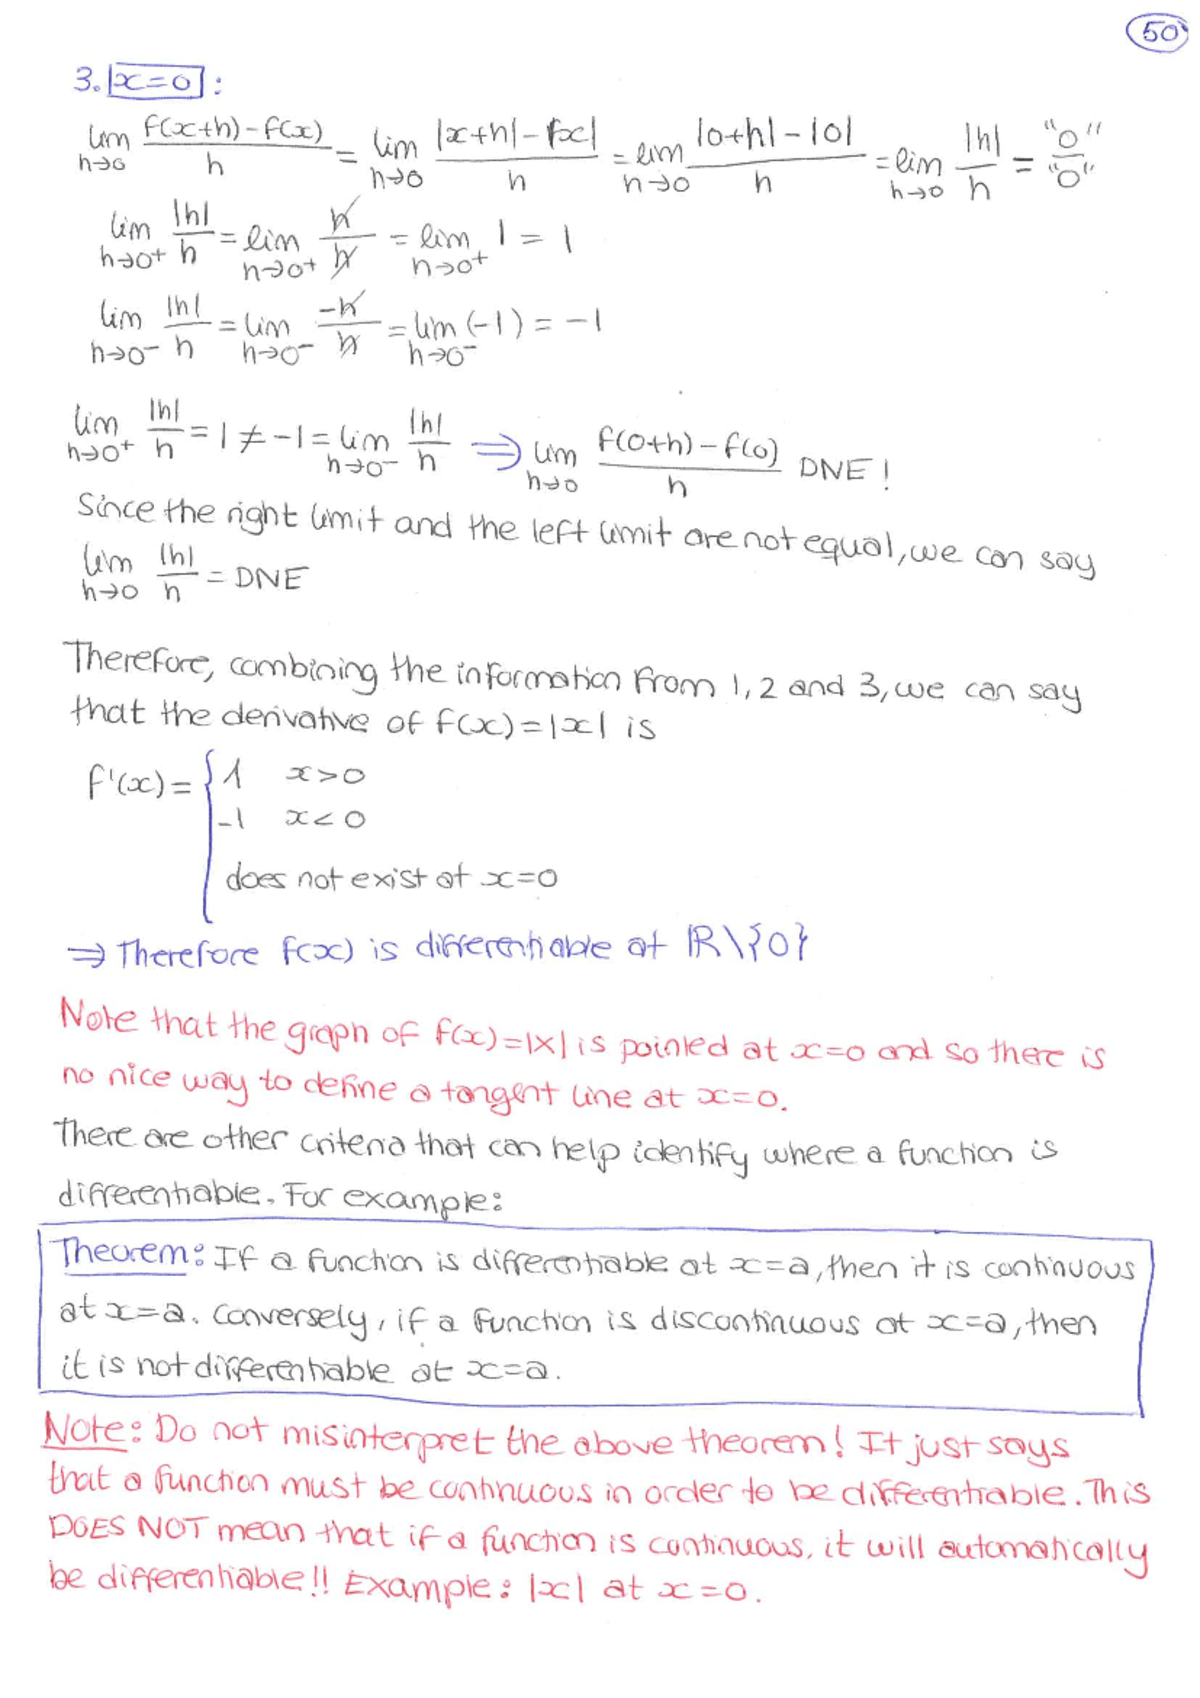 50
3. x=0 :
lim h→0 f(x+h)-f(x) / h = lim h→0 |x+h|-|x| / h = lim h→0 |0+h|-|0| / h = lim h→0 |h| / h = "0" / "0"
lim h→0+ |h| / h = lim h→0+ h / h = lim h→0+ 1 = 1
lim h→0- |h| / h = lim h→0- -h / h = lim h→0- (-1) = -1
lim h→0+ |h| / h = 1 ≠ -1 = lim h→0- |h| / h ⇒ lim h→0 f(0+h)-f(0) / h DNE!
Since the right limit and the left limit are not equal, we can say
lim h→0 |h| / h = DNE
Therefore, combining the information from 1, 2 and 3, we can say
that the derivative of f(x)=|x| is
f'(x)= { 1 x>0
-1 x<0
does not exist at x=0
⇒ Therefore f(x) is differentiable at ℝ\{0}
Note that the graph of f(x)=|x| is pointed at x=0 and so there is
no nice way to define a tangent line at x=0.
There are other criteria that can help identify where a function is
differentiable. For example:
Theorem: If a function is differentiable at x=a, then it is continuous
at x=a. Conversely, if a function is discontinuous at x=a, then
it is not differentiable at x=a.
Note: Do not misinterpret the above theorem! It just says
that a function must be continuous in order to be differentiable. This
DOES NOT mean that if a function is continuous, it will automatically
be differentiable!! Example: |x| at x=0.